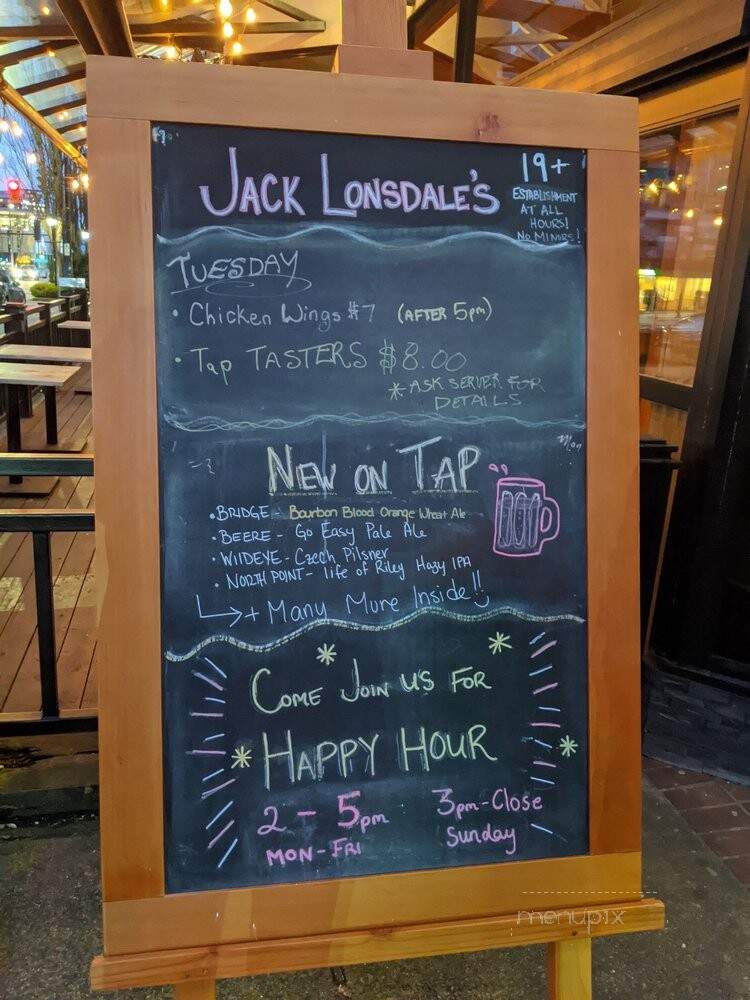 JACK LONSDALE'S
19+
ESTABLISHMENT
AT ALL
HOURS!
NO MINORS!
TUESDAY
• Chicken Wings $7 (AFTER 5pm)
• Tap TASTERS $8.00
* ASK SERVER FOR
DETAILS
NEW ON TAP
• BRIDGE - Bourbon Blood Orange Wheat Ale
• BEERE - Go Easy Pale Ale
• WILDEYE - Czech Pilsner
• NORTH POINT - life of Riley Hazy IPA
+ Many More Inside!!
COME JOIN US FOR
HAPPY HOUR
2 - 5pm
MON - FRI
3pm - Close
Sunday
menupix